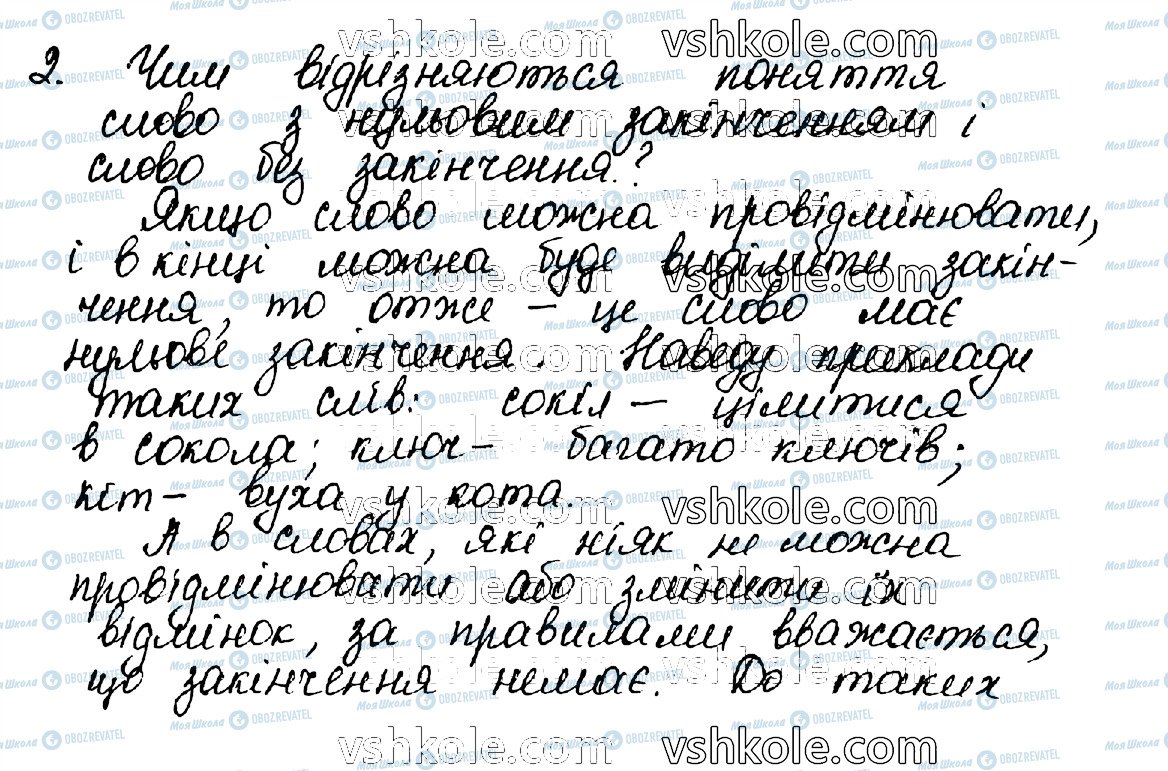 2. Чим відрізняються поняття
слово з нульовим закінченням і
слово без закінчення?
Якщо слово можна провідмінювати,
і в кінці можна буде виділити закін-
чення, то отже – це слово має
нульове закінчення. Наведу приклади
таких слів: сокіл – цілитися
в сокола; ключ – багато ключів;
кіт – вуха у кота.
А в словах, які ніяк не можна
провідмінювати або змінити їх
відмінок, за правилами вважається,
що закінчення немає. До таких
vshkole.com vshkole.com
Моя Школа OBOZREVATEL